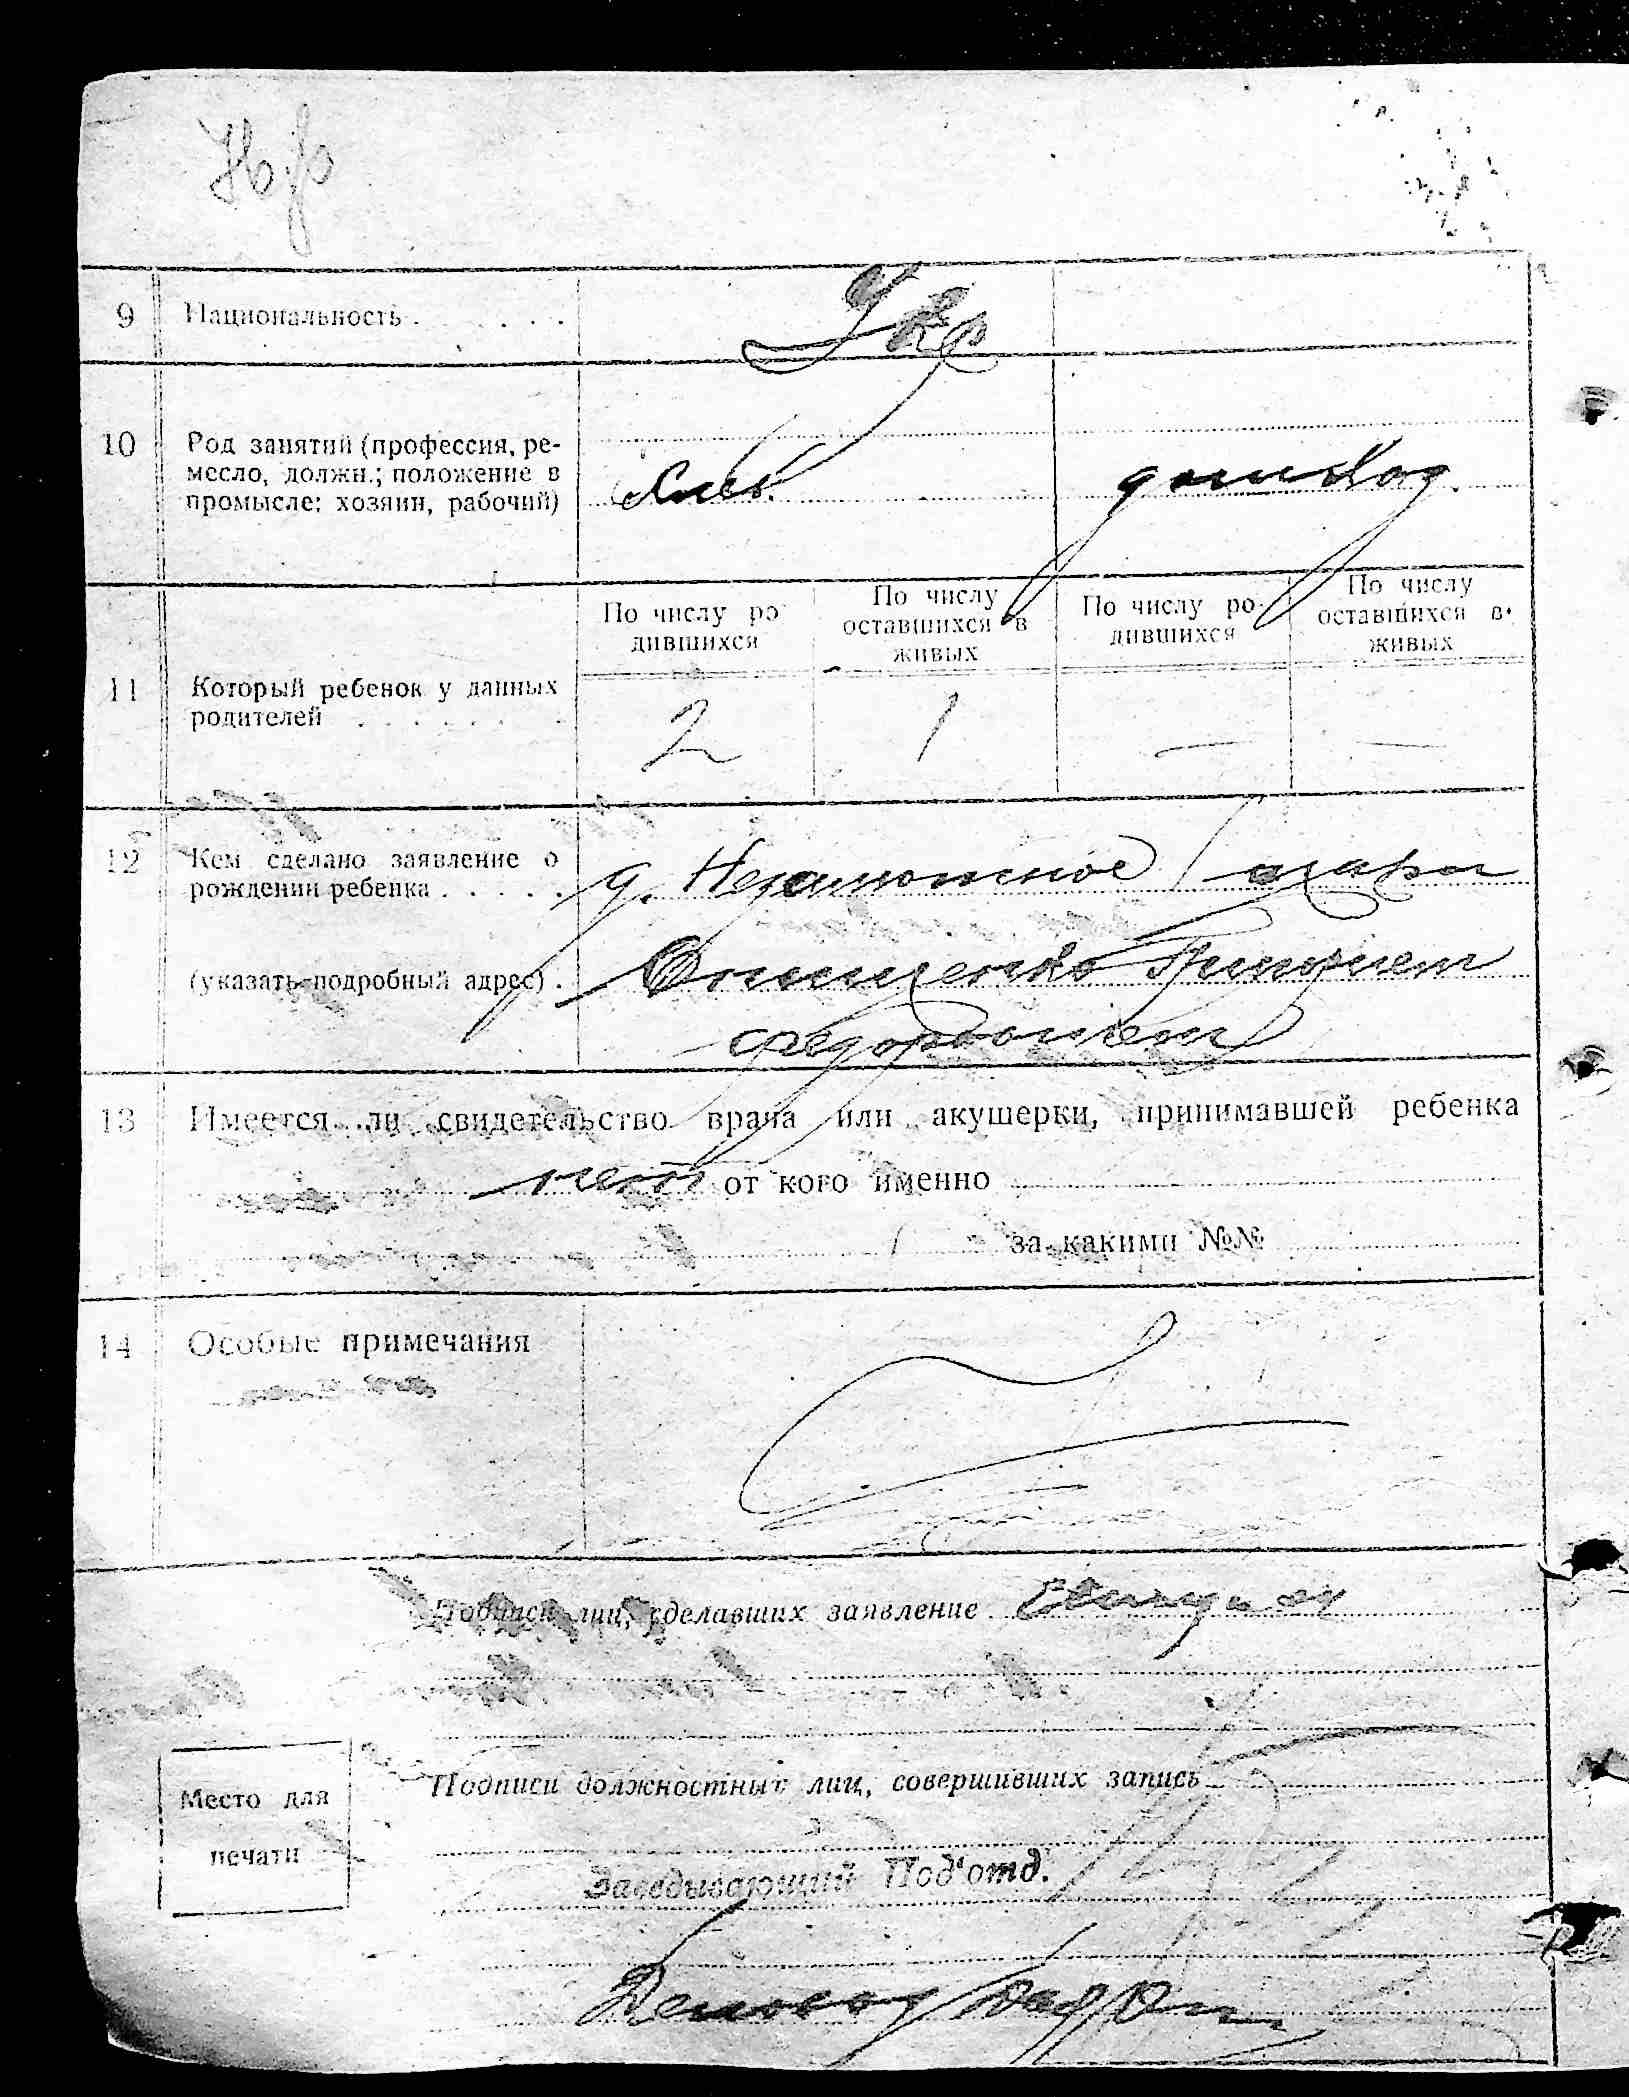 9 Национальность . . . . . Укр
10 Род занятий (профессия, ре-
месло, должн.; положение в
промысле: хозяин, рабочий)
домохоз.
По числу ро-
дившихся
По числу
оставшихся в
живых
По числу ро-
дившихся
По числу
оставшихся в
живых
11 Который ребенок у данных
родителей . . . . . .
2 1 — —
12 Кем сделано заявление о
рождении ребенка . . . . .
д. Незаможное
(указать подробный адрес) .
Онищенко Григорием
Федоровичем
13 Имеется ли свидетельство врача или акушерки, принимавшей ребенка
нет от кого именно
за какими №№
14 Особые примечания
Подписи лиц, сделавших заявление
Подписи должностных лиц, совершивших запись
Место для
печати
Заведывающий Под'отд.